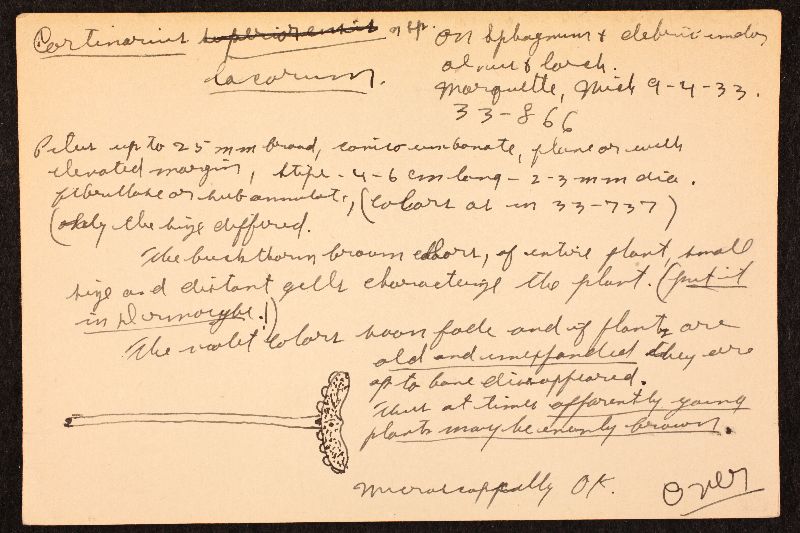 Cortinarius superiorensis n sp. On Sphagnum & debris under
lacorum. alnus & larch.
Marquette, Mich 9-4-33.
33-866
Pilus up to 25 mm broad, conico umbonate, plane or with
elevated margin, stipe - 4-6 cm long - 2-3 mm dia.
fibrillose or subannulate, (Colors as in 33-737)
(only the size differed.
The buckthorn brown colors, of entire plant, small
size and distant gills characterize the plant. (put it
in Dermocybe!)
The violet colors soon fade and if plants are
old and unexpanded they are
apt to have disappeared.
Thus at times apparently young
plants may be evenly brown.
Microscopically OK.
Over